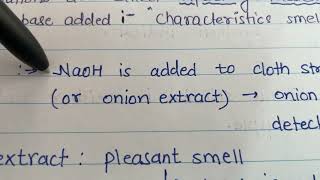 base added :- "Characteristics smell
:→ NaOH is added to cloth
(or onion extract) → onion
detec
extract : pleasant smell